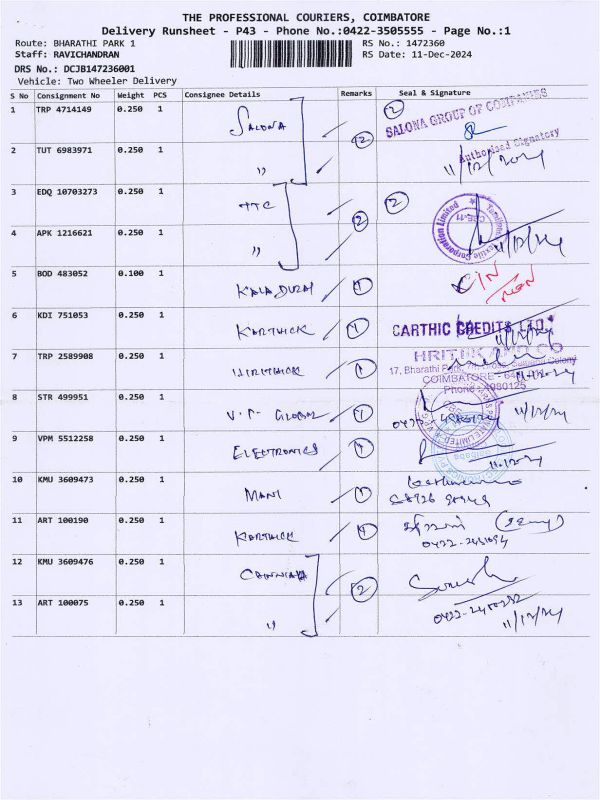 THE PROFESSIONAL COURIERS, COIMBATORE
Delivery Runsheet - P43 - Phone No.:0422-3505555 - Page No.:1
Route: BHARATHI PARK 1 RS No.: 1472360
Staff: RAVICHANDRAN RS Date: 11-Dec-2024
DRS No.: DCJB147236001
Vehicle: Two Wheeler Delivery
S No Consignment No Weight PCS Consignee Details Remarks Seal & Signature
1 TRP 4714149 0.250 1 SALONA 2 2 SALONA GROUP OF COMPANIES
Authorised Signatory
2 TUT 6983971 0.250 1 " 11/12/2024
3 EDQ 10703273 0.250 1 TTC 2 2
4 APK 1216621 0.250 1 " 11/12/24
5 BOD 483052 0.100 1 KALADURAI 1
6 KDI 751053 0.250 1 KARTHICK 1 CARTHIC CREDITS LTD.
7 TRP 2589908 0.250 1 HRITHICK 1 HRITHIK AND CO
17, Bharathi Park, 7th Cross, Saibaba Colony
COIMBATORE -
Phone : 4980125
8 STR 499951 0.250 1 V.P. GLOBAL 1 11/12/24
9 VPM 5512258 0.250 1 ELECTRONICS 1 11.12.24
10 KMU 3609473 0.250 1 MANI 1
11 ART 100190 0.250 1 KARTHICK 1
0422-2451094
12 KMU 3609476 0.250 1 2
13 ART 100075 0.250 1 " 11/12/24